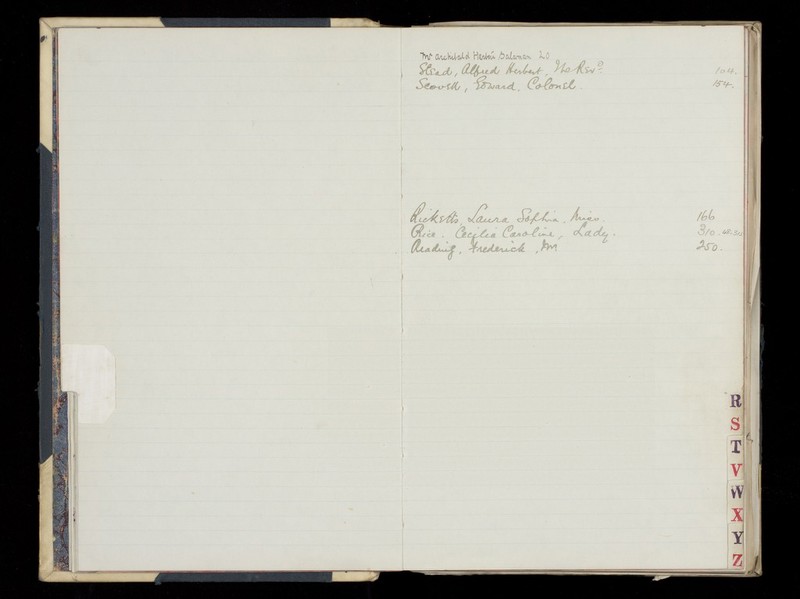 Mr Archibald Salaman
Stead, Alfred Herbert, The Revd. 104.
Scovell, Edward, Colonel. 154.
Ricketts, Laura Sophia, Miss. 166
Rice. Cecilia Caroline, Lady. 310.
Reading, Frederick, Mr 250.
R
S
T
V
W
X
Y
Z